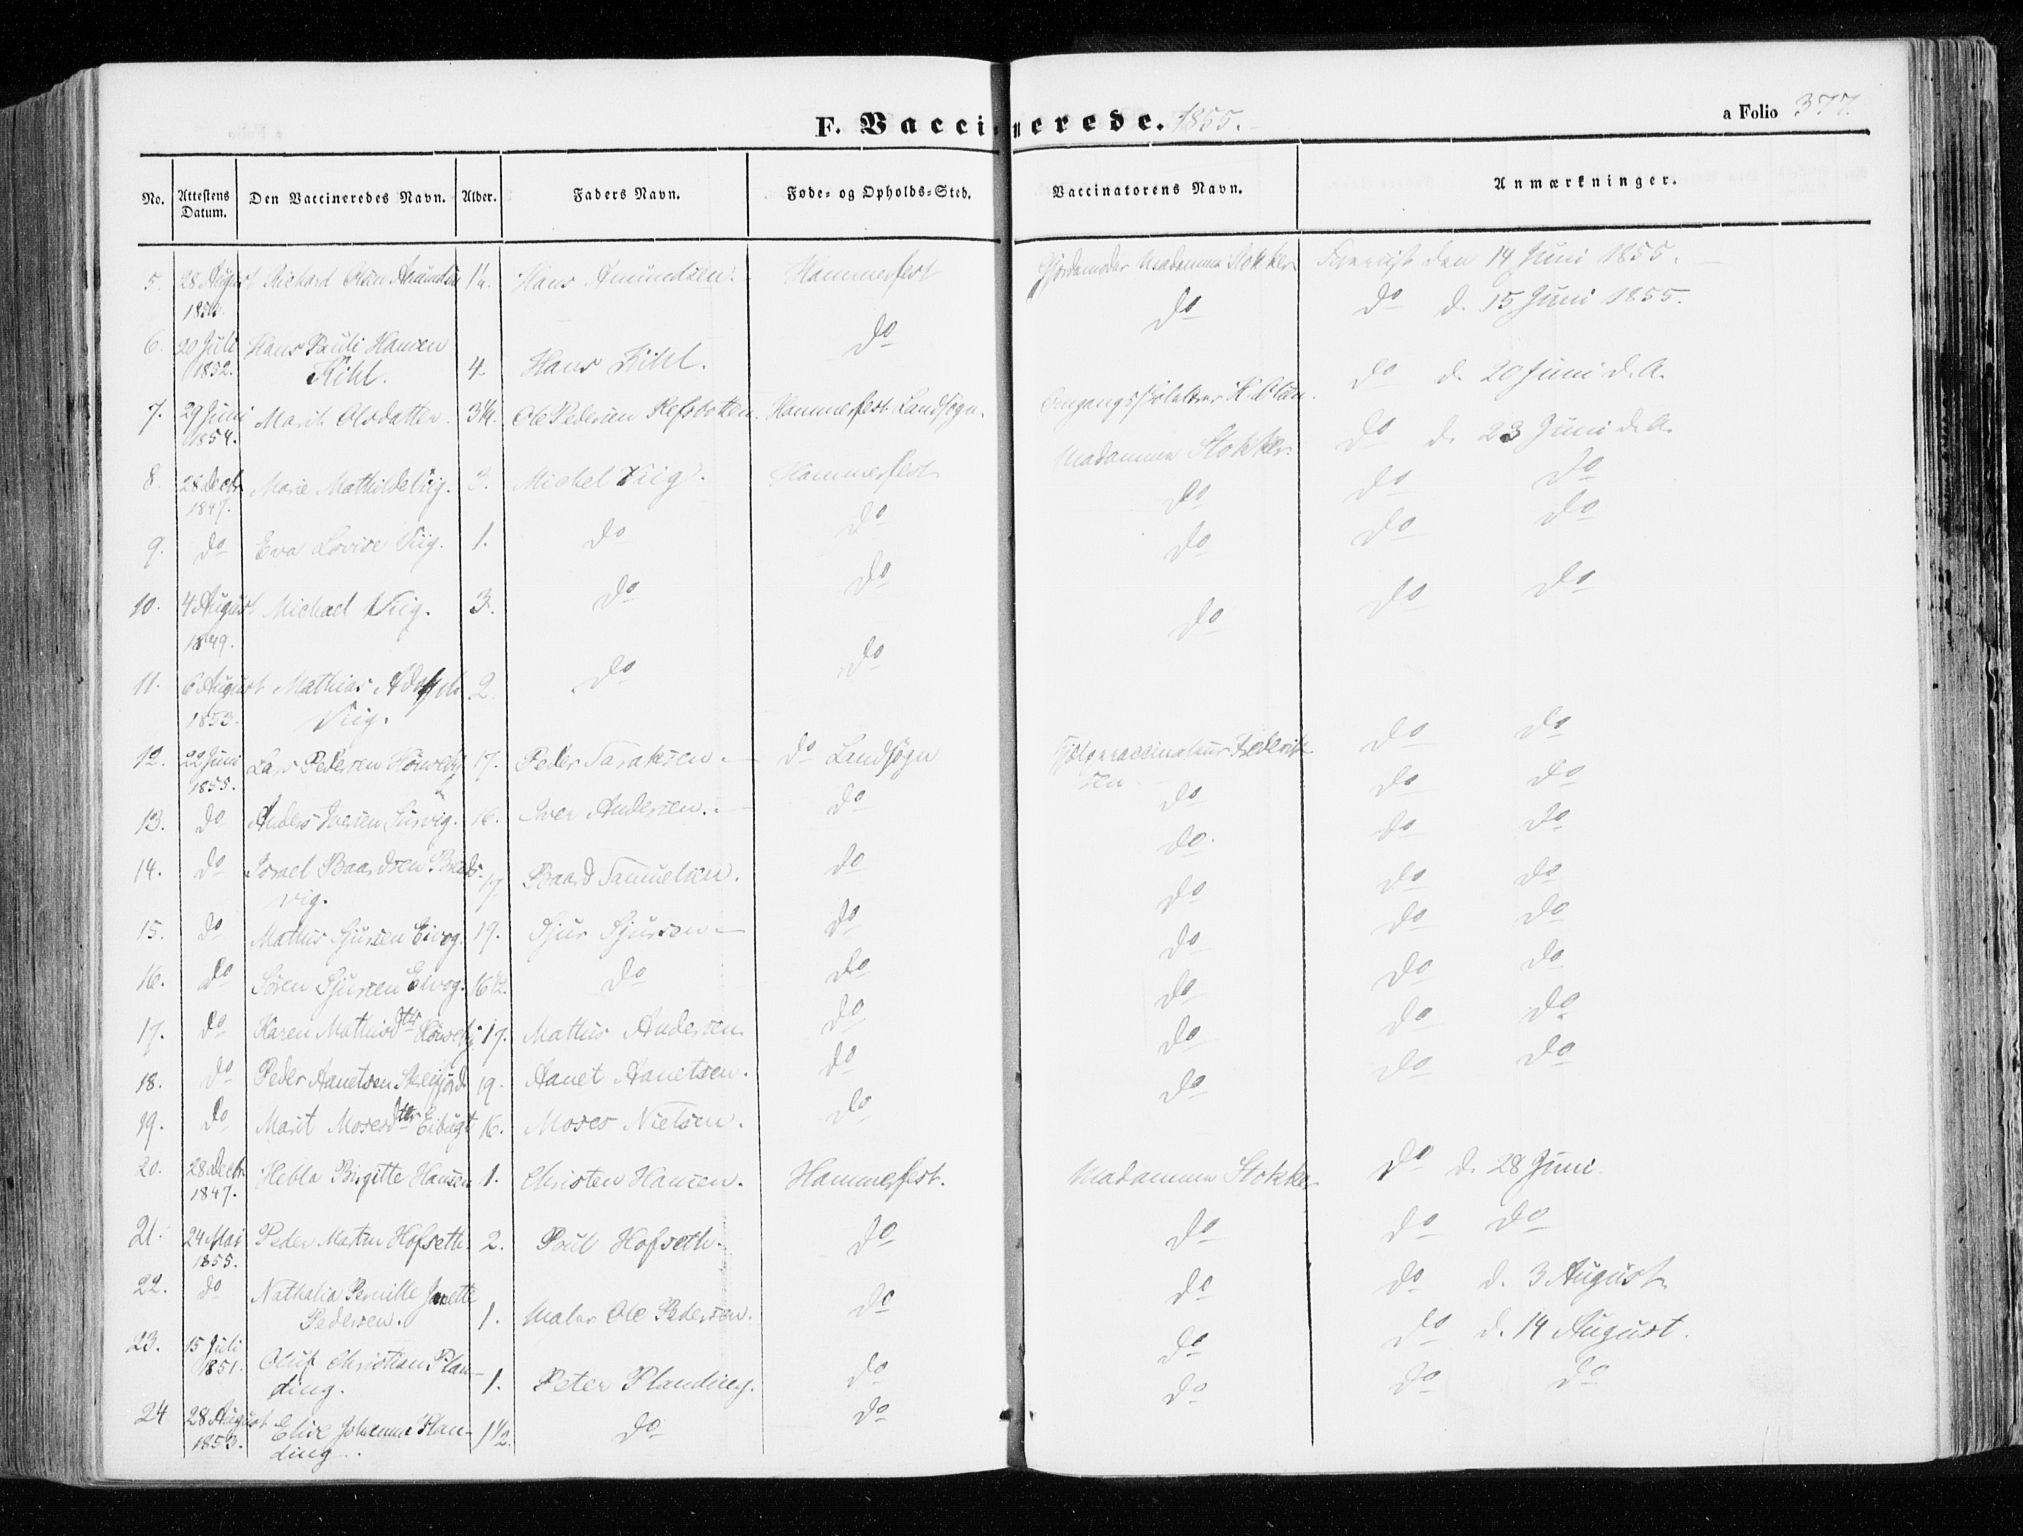 F. Vaccinerede. 1855.
a Folio 377.
No. Attestens Datum. Den Vaccineredes Navn. Alder. Faders Navn. Føde- og Opholds-Sted. Vaccinatorens Navn. Anmærkninger.
5. 28 August Richard Olsen Amundsen 1¼. Hans Amundsen. Hammerfest Jordemoder Madamme Stokker den 14 Juni 1855.
1854. do do d. 15 Juni 1855.
6. 20 Juli Hans Pauli Hansen do
1852. Kihl. 4. Hans Kihl. do d. 20 Juni d. A.
7. 29 Juni Marit Olsdatter 3¼. Ole Pedersen Refsbotten Hammerfest Landsogn. Olsen.
1854. Madamme Stokker do d. 23 Juni d. A.
8. 28 Decbr Marie Mathilde Viig. 3. Michel Viig. Hammerfest do do do
1847.
9. do Eva Lovise Viig. 1. do do do do do
10. 4 August Michael Viig. 3. do do do do do
1849.
11. 6 August Mathias Adolph 2. do do
1853. Viig.
12. 22 Juni Lars Pedersen 17. Peder Isaksen. do Landsogn Hjelpevaccinateur Frederik- do do
1855. sen
13. do Anders Iversen Survig. 16. Iver Andersen. do do do do
14. do Israel Baardsen 17. Baard Samuelsen. do do. do do
vig.
15. do Mathis Sjursen Eivog. 19. Sjur Sjursen do do do do
16. do Søren Sjursen Eivog. 16½. do do do do do
17. do Karen Mathisdtr 19. Mathis Andersen do do do do
18. do Peder Aanetsen 19. Aanet Aanetsen. do do do do
19. do Marit Mosesdtr Eibugt 16. Moses Nielsen. do do do do
20. 28 Decbr Hebla Birgitte Hansen 1. Christen Hansen. Hammerfest. Madamme Stokker do d. 28 Juni.
1847.
21. 24 Mai Peder Martin Hofseth. 2. Poul Hofseth. do do do do
1855.
22. do Nathalia Pernille Janette do do d. 3 August
Pedersen. 1. Maler Ole Pedersen. do
23. 15 Juli Oluf Christian Plan- do do d. 14 August.
1851. ding. 1. Peter Planding. do
24 28 August Elise Johanne Plan- 1½. do do do do do
1853. ding.